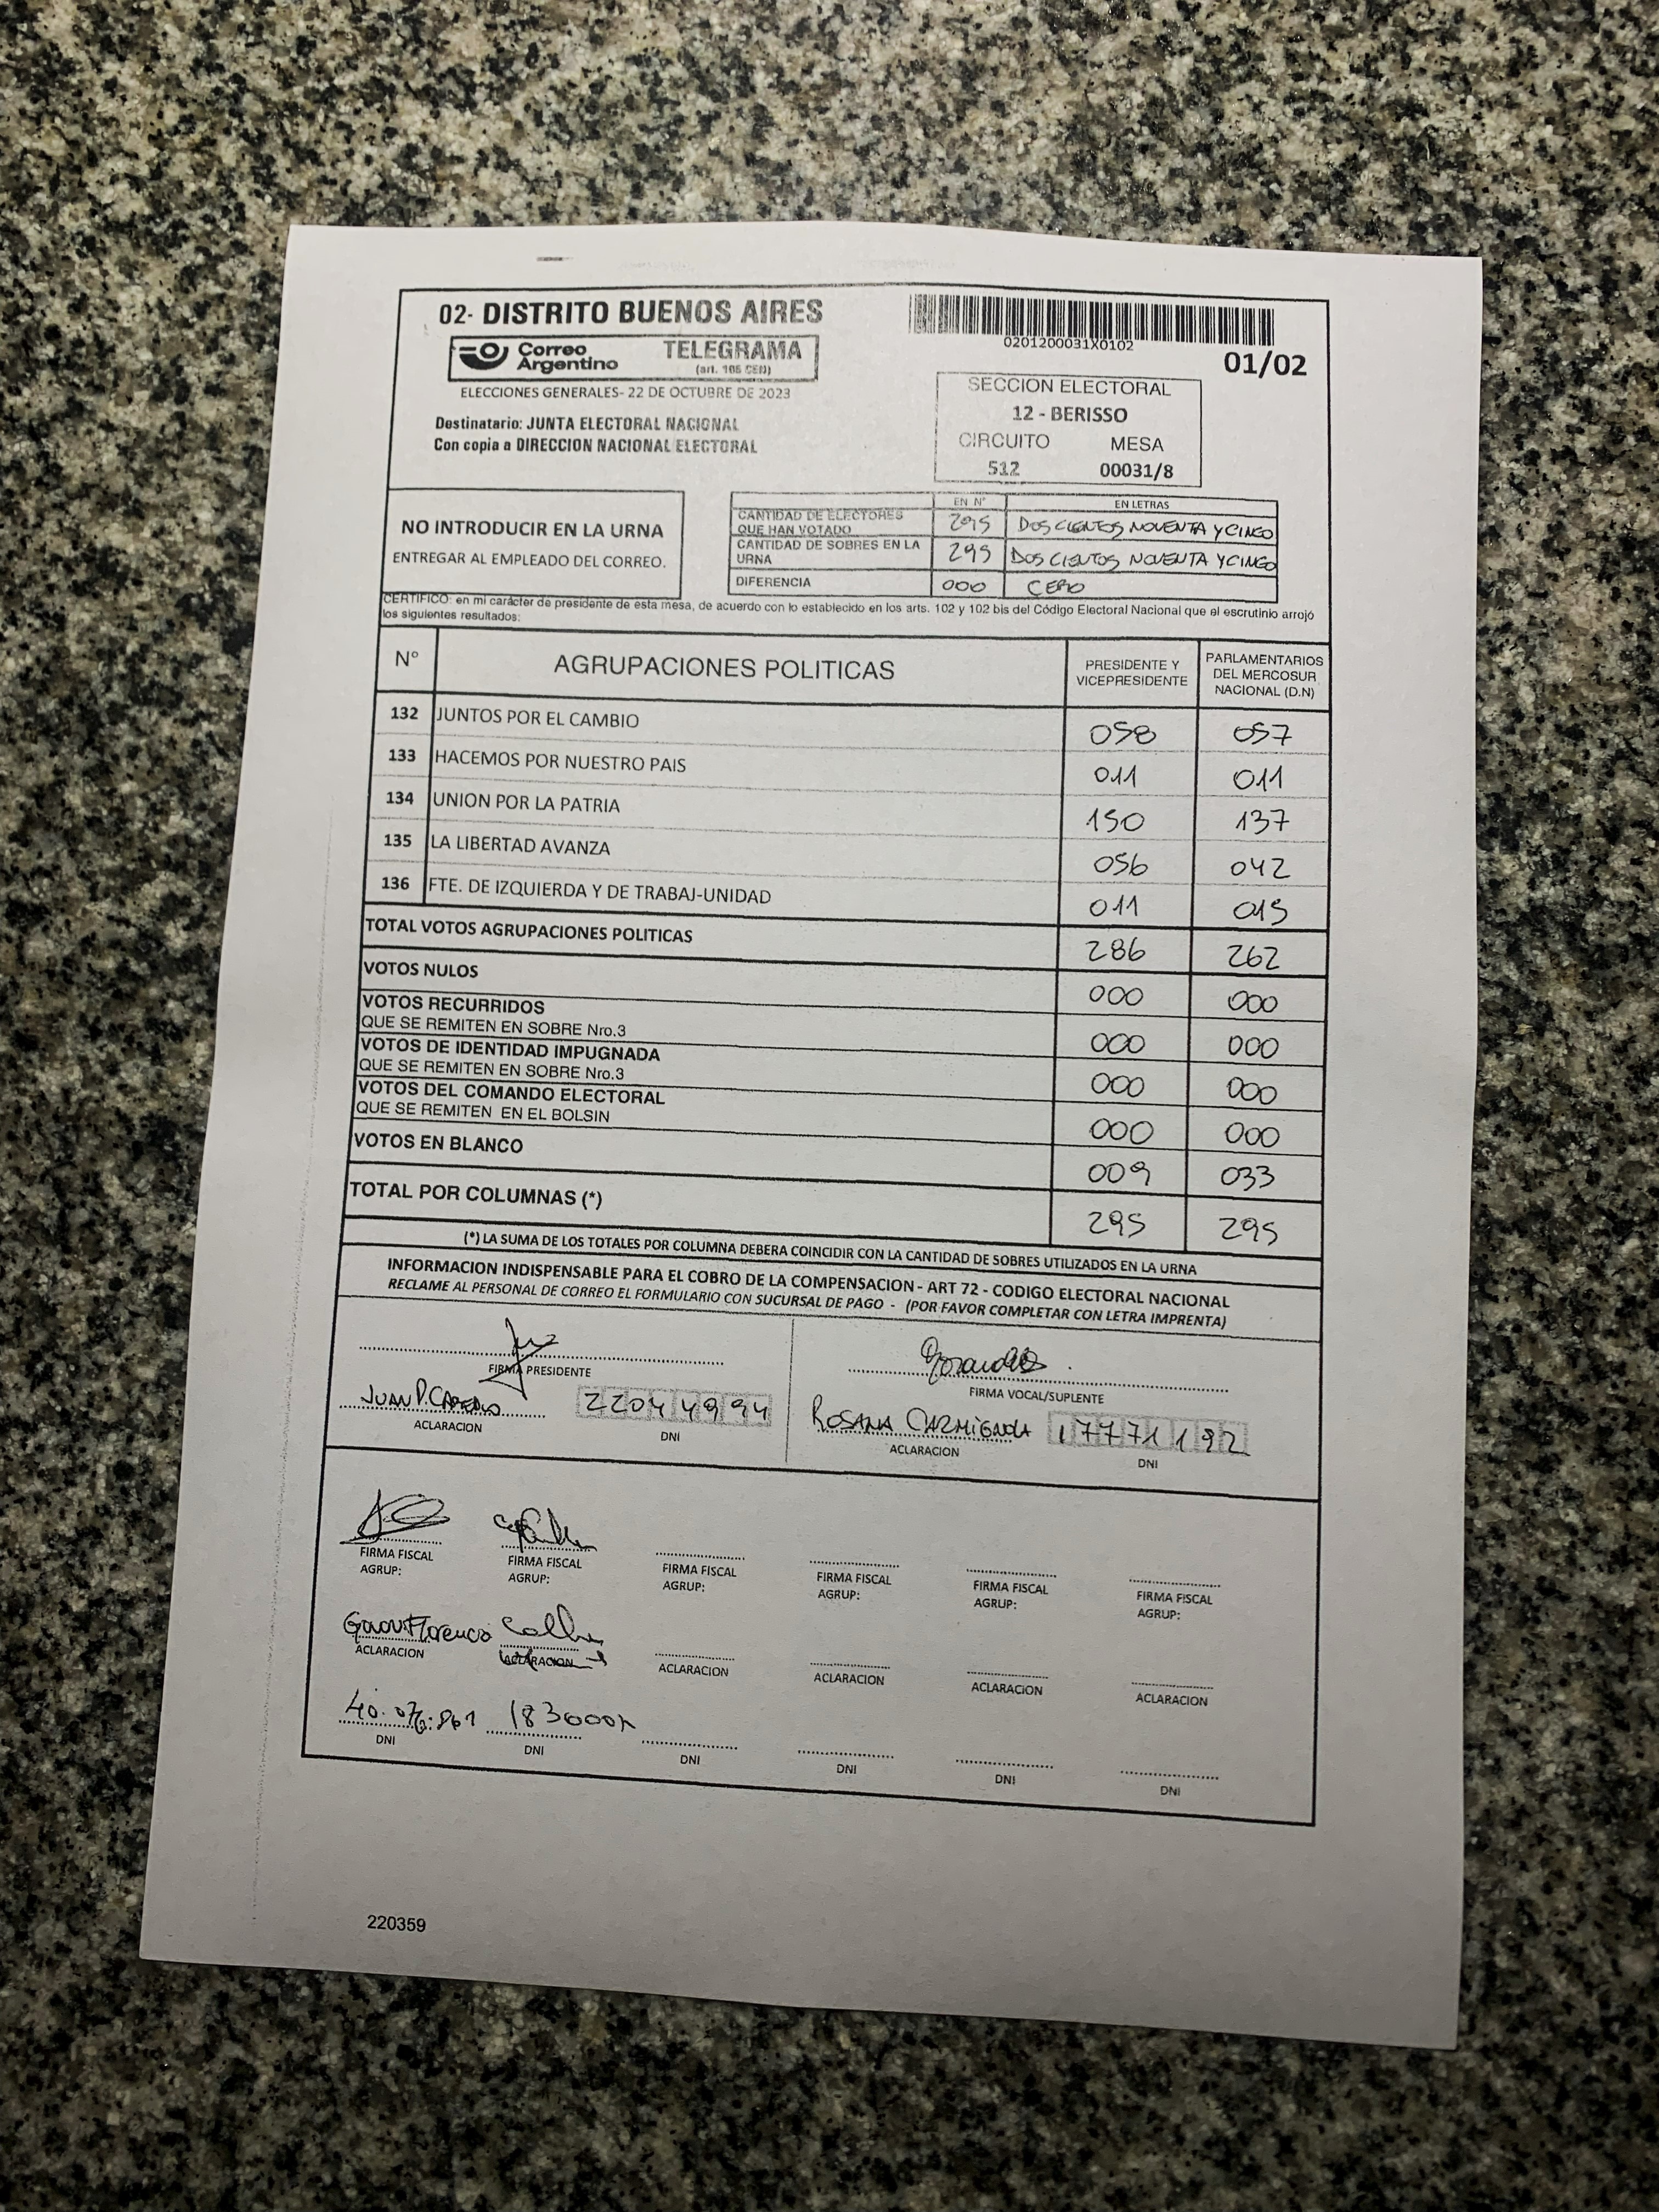 02- DISTRITO BUENOS AIRES
Correo Argentino TELEGRAMA
(art. 105 CEN)
ELECCIONES GENERALES- 22 DE OCTUBRE DE 2023
Destinatario: JUNTA ELECTORAL NACIONAL
Con copia a DIRECCION NACIONAL ELECTORAL
0201200031X0102
01/02
SECCION ELECTORAL
12 - BERISSO
CIRCUITO MESA
512 00031/8
NO INTRODUCIR EN LA URNA
ENTREGAR AL EMPLEADO DEL CORREO.
EN Nº EN LETRAS
CANTIDAD DE ELECTORES QUE HAN VOTADO 295 DOS CIENTOS NOVENTA Y CINCO
CANTIDAD DE SOBRES EN LA URNA 295 DOS CIENTOS NOVENTA Y CINCO
DIFERENCIA 000 CERO
CERTIFICO: en mi carácter de presidente de esta mesa, de acuerdo con lo establecido en los arts. 102 y 102 bis del Código Electoral Nacional que el escrutinio arrojó
los siguientes resultados:
Nº AGRUPACIONES POLITICAS PRESIDENTE Y VICEPRESIDENTE PARLAMENTARIOS DEL MERCOSUR NACIONAL (D.N)
132 JUNTOS POR EL CAMBIO 058 057
133 HACEMOS POR NUESTRO PAIS 011 011
134 UNION POR LA PATRIA 150 137
135 LA LIBERTAD AVANZA 056 042
136 FTE. DE IZQUIERDA Y DE TRABAJ-UNIDAD 011 015
TOTAL VOTOS AGRUPACIONES POLITICAS 286 262
VOTOS NULOS 000 000
VOTOS RECURRIDOS
QUE SE REMITEN EN SOBRE Nro.3 000 000
VOTOS DE IDENTIDAD IMPUGNADA
QUE SE REMITEN EN SOBRE Nro.3 000 000
VOTOS DEL COMANDO ELECTORAL
QUE SE REMITEN EN EL BOLSIN 000 000
VOTOS EN BLANCO 009 033
TOTAL POR COLUMNAS (*) 295 295
(*) LA SUMA DE LOS TOTALES POR COLUMNA DEBERA COINCIDIR CON LA CANTIDAD DE SOBRES UTILIZADOS EN LA URNA
INFORMACION INDISPENSABLE PARA EL COBRO DE LA COMPENSACION - ART 72 - CODIGO ELECTORAL NACIONAL
RECLAME AL PERSONAL DE CORREO EL FORMULARIO CON SUCURSAL DE PAGO - (POR FAVOR COMPLETAR CON LETRA IMPRENTA)
FIRMA PRESIDENTE FIRMA VOCAL/SUPLENTE
JUAN P. 22044994 ROSANA CARMIGNOLA 17771192
ACLARACION DNI ACLARACION DNI
FIRMA FISCAL FIRMA FISCAL FIRMA FISCAL FIRMA FISCAL FIRMA FISCAL FIRMA FISCAL
AGRUP: AGRUP: AGRUP: AGRUP: AGRUP: AGRUP:
Florencia
ACLARACION ACLARACION ACLARACION ACLARACION ACLARACION ACLARACION
DNI DNI DNI DNI DNI DNI
220359